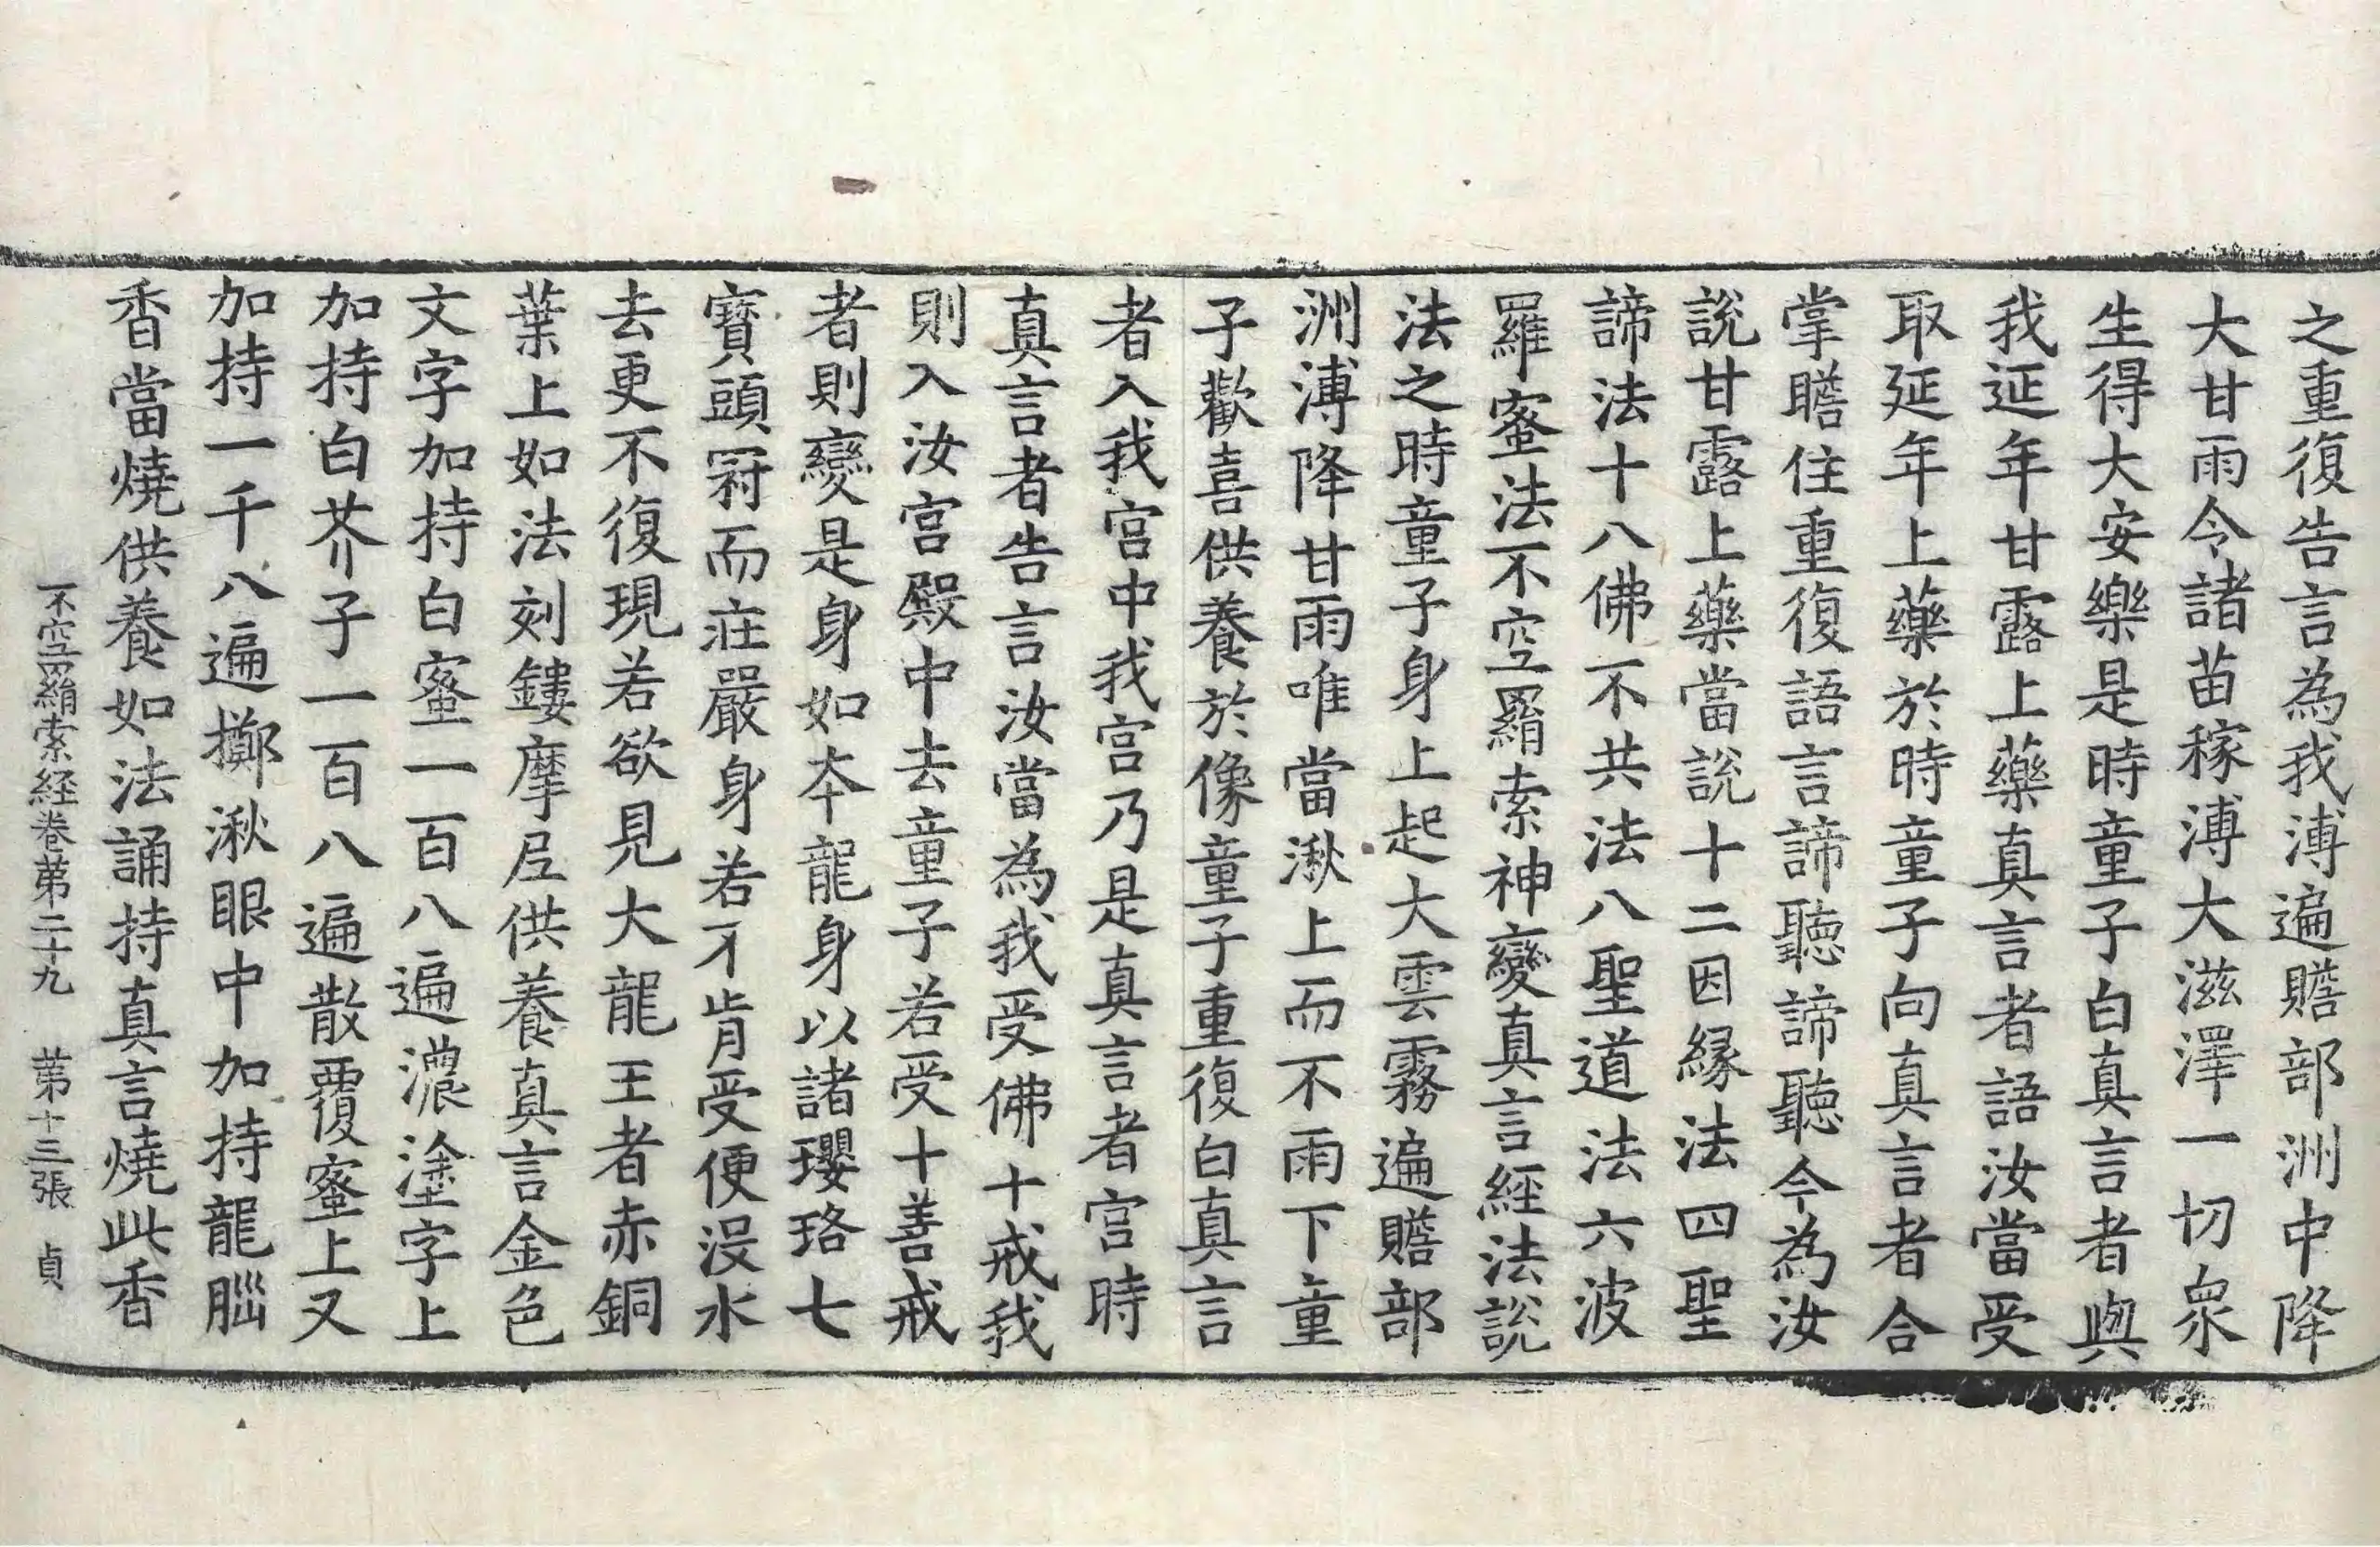 之重復告言為我溥遍贍部洲中降
大甘雨令諸苗稼溥大滋澤一切衆
生得大安樂是時童子白真言者與
我延年甘露上藥真言者語汝當受
取延年上藥於時童子向真言者合
掌瞻住重復語言諦聽諦聽今為汝
說甘露上藥當說十二因緣法四聖
諦法十八佛不共法八聖道法六波
羅蜜法不空羂索神變真言經法說
法之時童子身上起大雲霧遍贍部
洲溥降甘雨唯當湫上而不雨下童
子歡喜供養於像童子重復白真言
者入我宮中我宮乃是真言者宮時
真言者告言汝當為我受佛十戒我
則入汝宮殿中去童子若受十善戒
者則變是身如本龍身以諸瓔珞七
寶頭冠而莊嚴身若不肯受便沒水
去更不復現若欲見大龍王者赤銅
葉上如法刻鏤摩尼供養真言金色
文字加持白蜜一百八遍濃塗字上
加持白芥子一百八遍散覆蜜上又
加持一千八遍擲湫眼中加持龍腦
香當燒供養如法誦持真言燒此香
不空羂索経卷第二十九 第十三張 貞